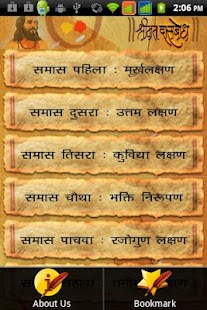 2:06 PM
श्रीमत् दासबोध
समास पहिला : मूर्खलक्षण
समास दुसरा : उत्तम लक्षण
समास तिसरा : कुविद्या लक्षण
समास चौथा : भक्ति निरूपण
समास पाचवा : रजोगुण लक्षण
About Us
Bookmark